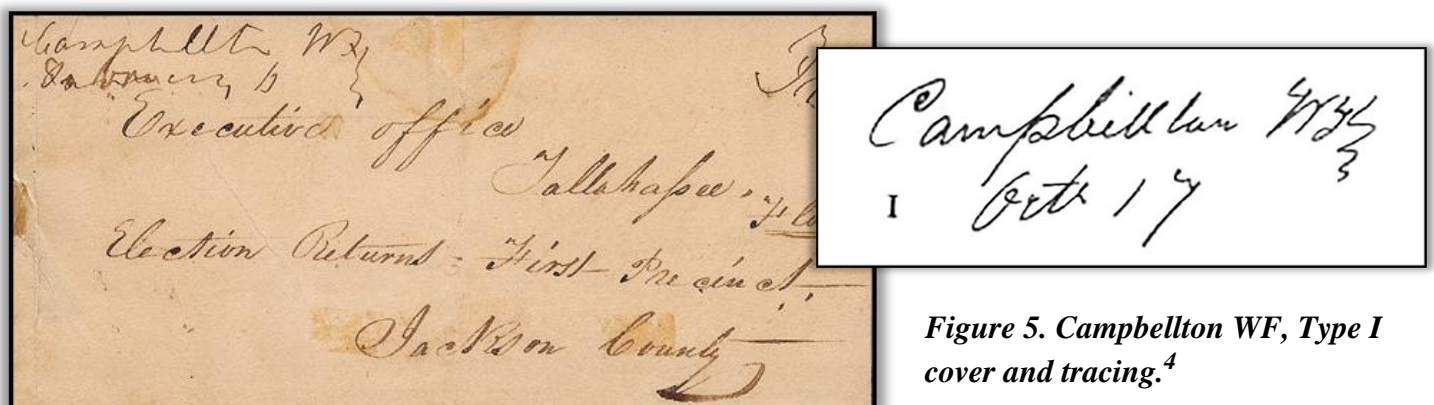 Campbellton WF
Executive office
Tallahassee,
Election Returns = First Precinct.
Jackson County
Campbellton WF
I Octr 17
Figure 5. Campbellton WF, Type I
cover and tracing.4